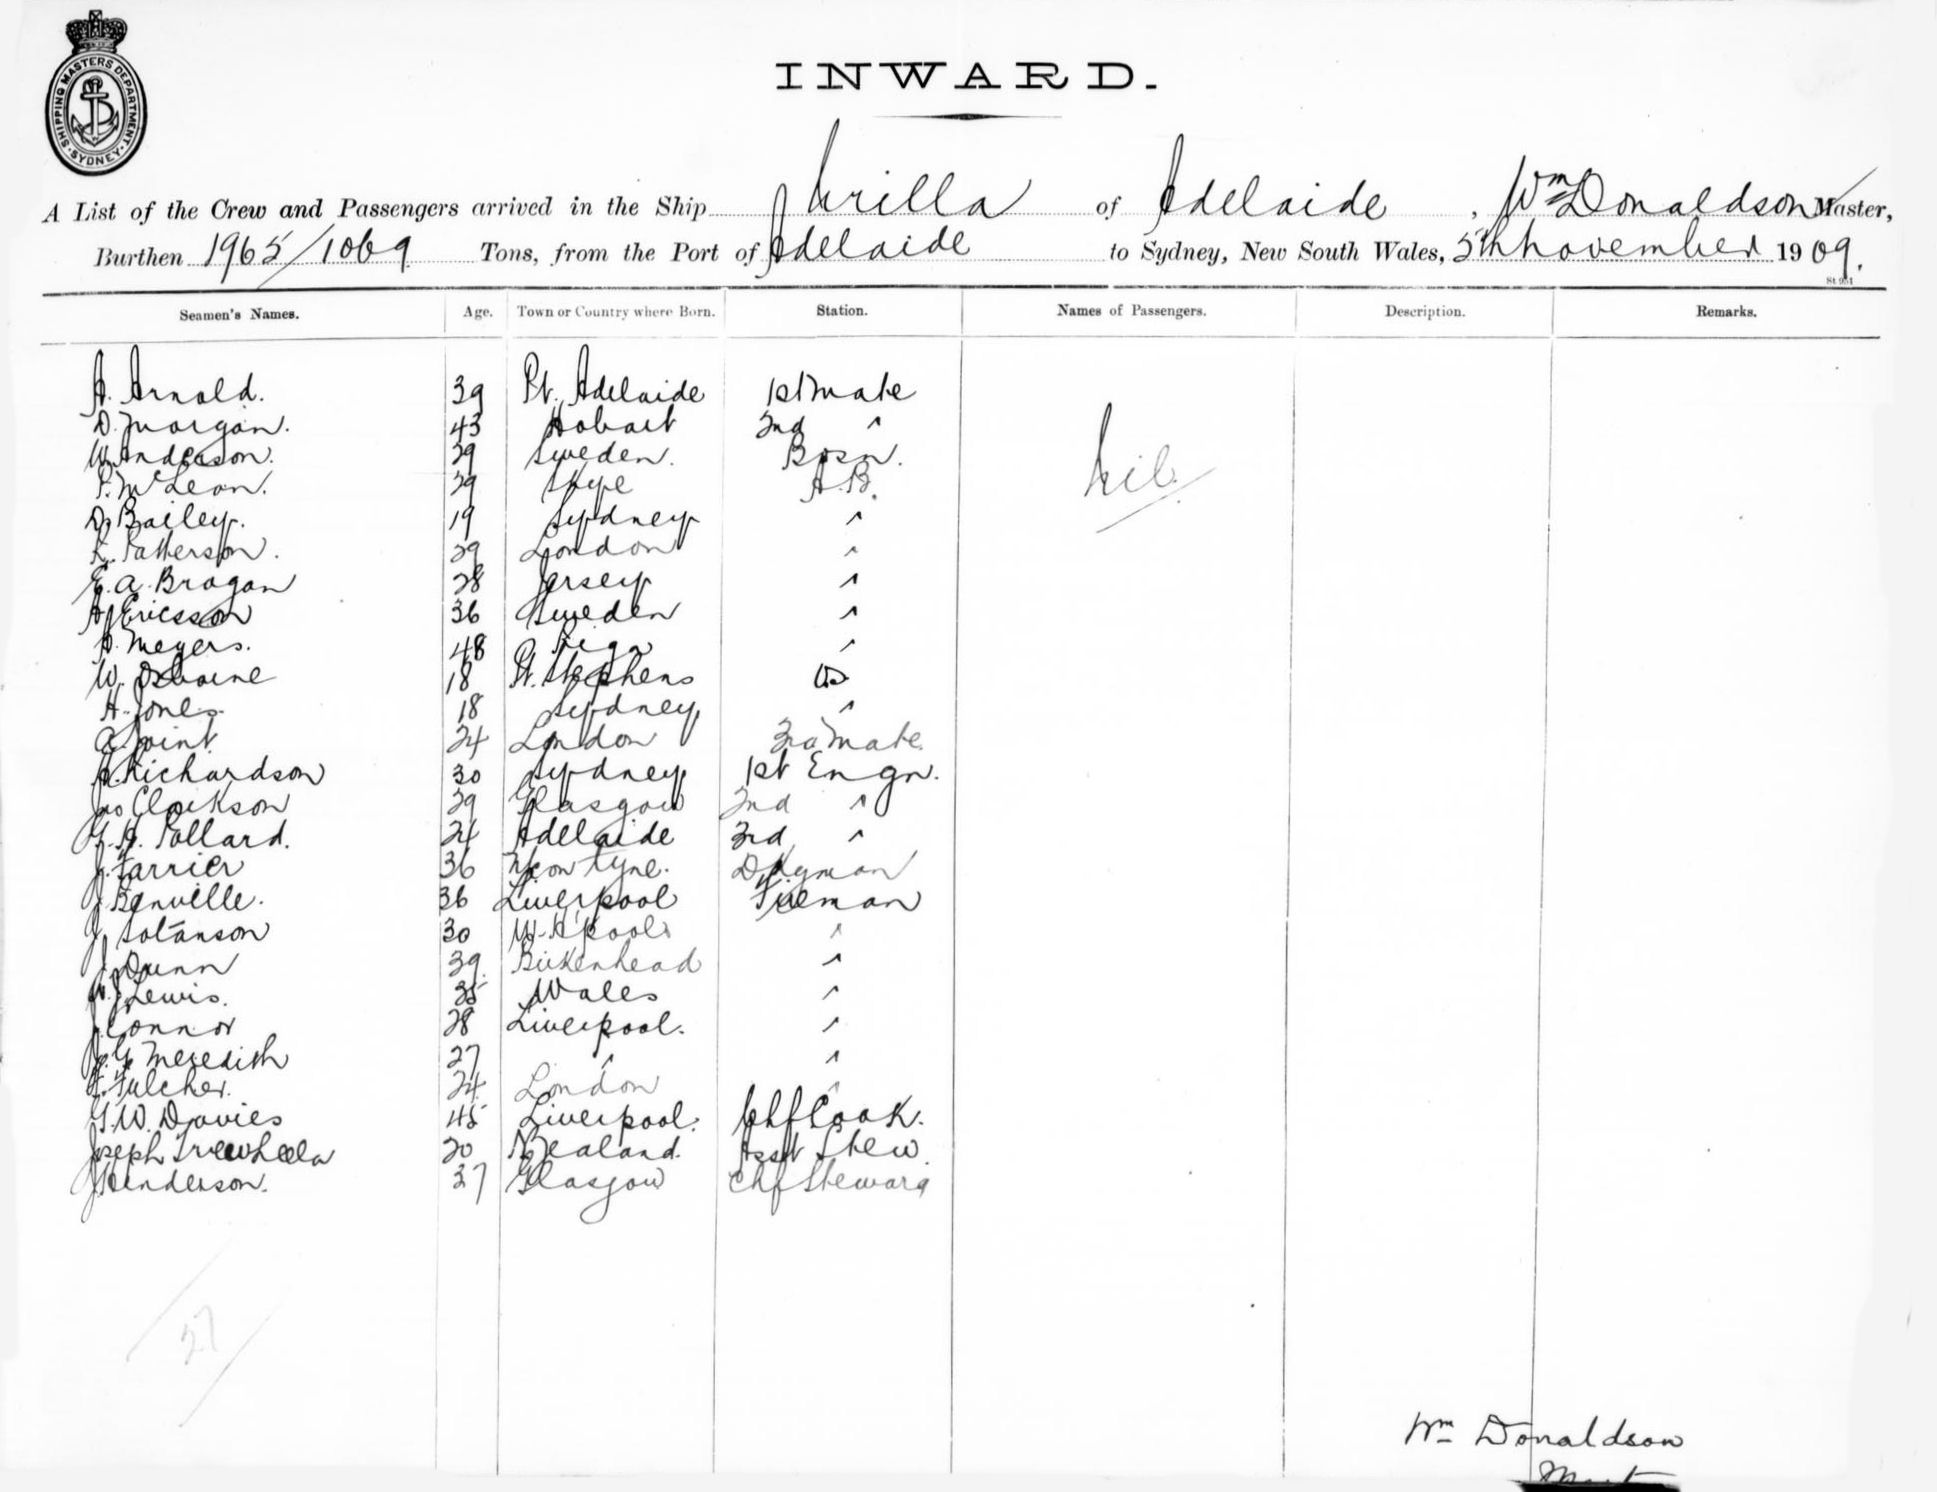 SHIPPING MASTERS DEPARTMENT. SYDNEY
INWARD.
A List of the Crew and Passengers arrived in the Ship Urilla of Adelaide, Wm Donaldson Master,
Burthen 1965/1069 Tons, from the Port of Adelaide to Sydney, New South Wales, 5th November 1909.
Seamen's Names. Age. Town or Country where Born. Station. Names of Passengers. Description. Remarks.
A. Arnold. 39 Pt. Adelaide 1st Mate
D. Morgan. 43 Hobart 2nd "
W. Anderson. 29 Sweden. Bosn.
P. McLean. 29 Skye A.B. nil
D. Bailey. 19 Sydney "
R. Patterson. 29 London "
E. A. Brogan 28 Jersey "
A. Ericsson 36 Sweden "
A. Meyers. 48 Riga "
W. Osborne 18 Pt. Stephens OS
H. Jones 18 Sydney "
A. Joint 24 London 3rd Mate
A. Richardson 30 Sydney 1st Engr.
Jno Clarkson 29 Glasgow 2nd "
G. H. Pollard. 24 Adelaide 3rd "
J. Farrier 36 N'con Tyne. Dkyman
J. Banville. 36 Liverpool Fireman
J. 30 W. H'pool "
J. Dunn 39 Birkenhead "
W. J. Lewis. 35 Wales "
J. Connor 28 Liverpool. "
J. G. Meredith 27 " "
F. Fulcher. 24 London "
G. W. Davies 45 Liverpool. Chf Cook.
Joseph Trewheela 20 N Zealand. Asst Stew.
J. Henderson. 37 Glasgow Chf Steward
27
Wm Donaldson